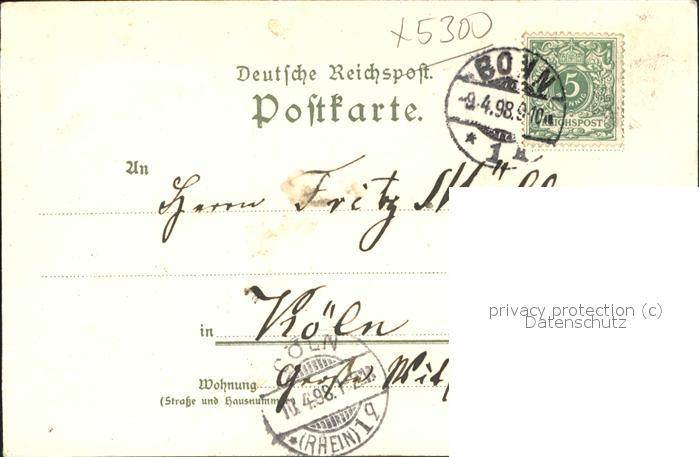 x5300
Deutsche Reichspost.
Postkarte.
5
REICHSPOST
BONN
9.4.98.9-10N
* 1 *
An
Herrn Fritz
privacy protection (c)
Datenschutz
in Köln
CÖLN
10.4.98.
* (RHEIN) 1 q
Wohnung Große
(Straße und Hausnummer)